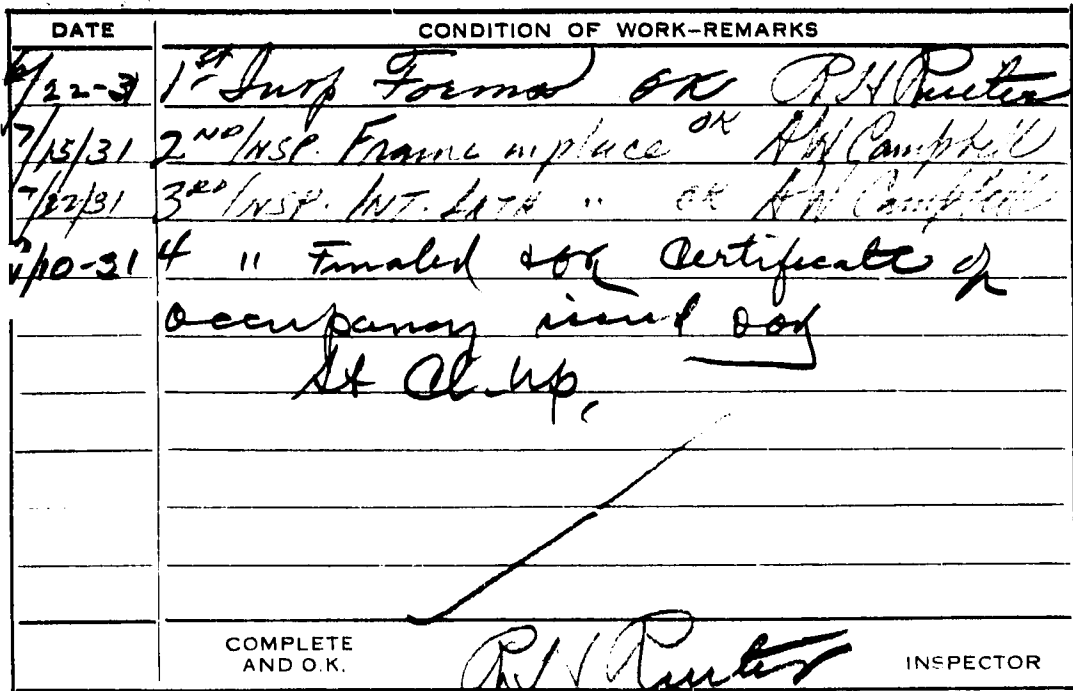 DATE CONDITION OF WORK-REMARKS
6/22-31 1st Insp Forms OK RH Ruiter
7/15/31 2ND INSP. Frame in place OK AW Campbell
7/22/31 3RD INSP. INT. LATH " OK AW Campbell
/10-31 4 " Finaled Certificate of
Occupancy issued
St Cl. Up,
COMPLETE AND O.K. RH Ruiter INSPECTOR